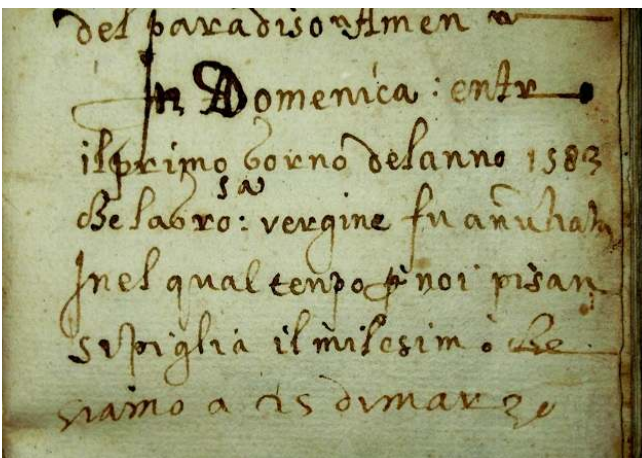 del paradiso Amen
In Domenica: entr
il primo gorno delanno 1583
che la gro:sa vergine fu
Inel qual tenpo p noi pisan
si piglia il milesimo che
siamo a 25 di marzo